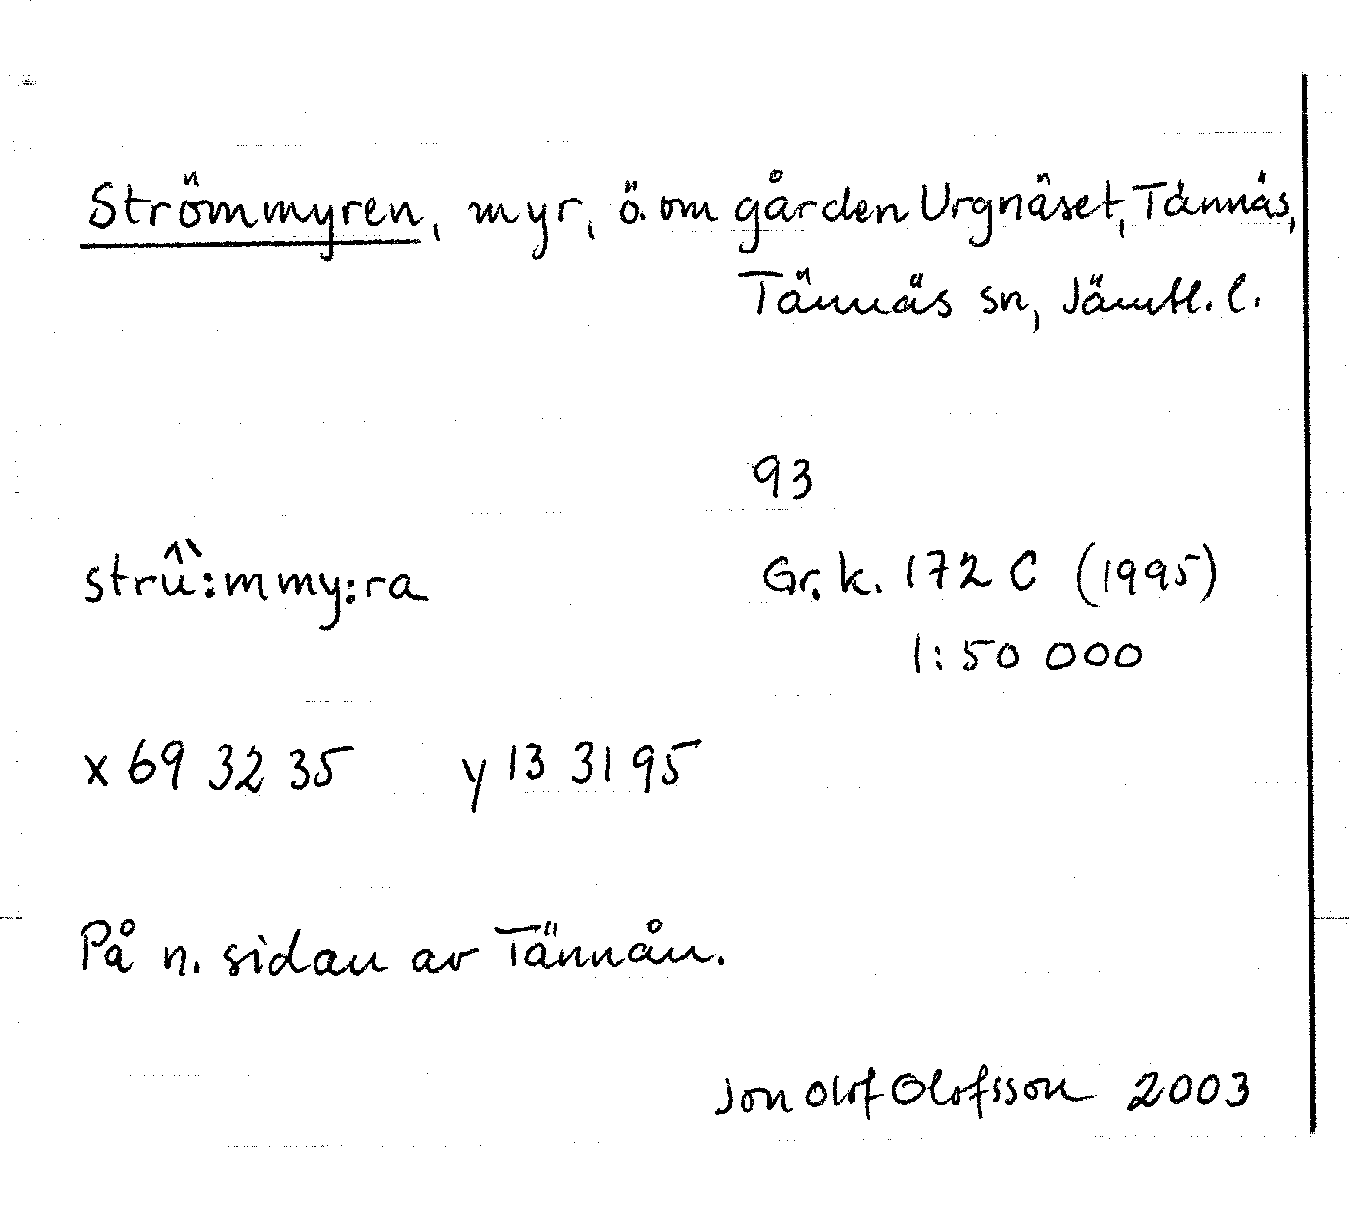 Strömmyren, myr, ö. om gården Urgnäset, Tännäs,
Tännäs sn, Jämtl. l.
93
strû̀:mmy:ra
Gr. k. 172 C (1995)
1:50 000
x 69 32 35 y 13 31 95
På n. sidan av Tännån.
Jon Olof Olofsson 2003